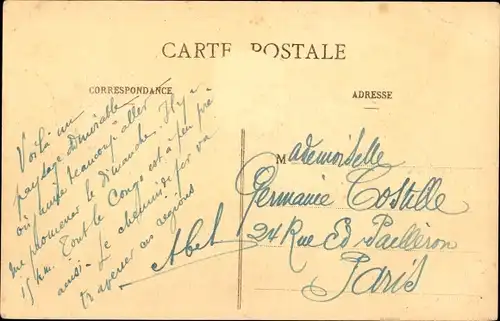 CARTE POSTALE
CORRESPONDANCE
Voilà un
paysage admirable
où j'aime beaucoup aller
me promener le dimanche. Il y a
15 km. Tout le Congo est à peu près
ainsi. Le chemin de fer va
traverser ces régions
Abel
ADRESSE
Mademoiselle
Germanie Costille
24 Rue Ed. Pailleron
Paris